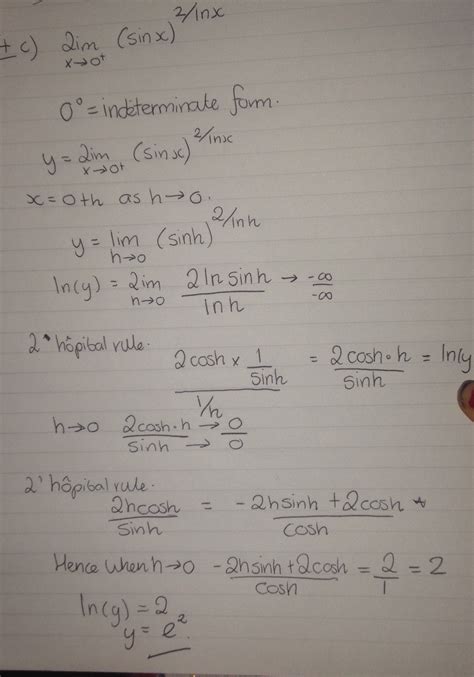 ± c) lim (sinx)^{2/lnx}
x→0⁺
0° = indeterminate form.
y = lim (sinx)^{2/lnx}
x→0+
x = 0+h as h→0.
y = lim (sinh)^{2/lnh}
h→0
ln(y) = lim 2 ln sinh / ln h → -∞ / -∞
h→0
L'hôpital rule.
2cosh × 1/sinh / 1/h = 2cosh·h / sinh = ln(y
h→0 2cosh·h / sinh → 0 / → 0
L'hôpital rule.
2hcosh / sinh = -2hsinh + 2cosh / cosh
Hence when h→0 -2hsinh + 2cosh / cosh = 2/1 = 2
ln(y) = 2
y = e².